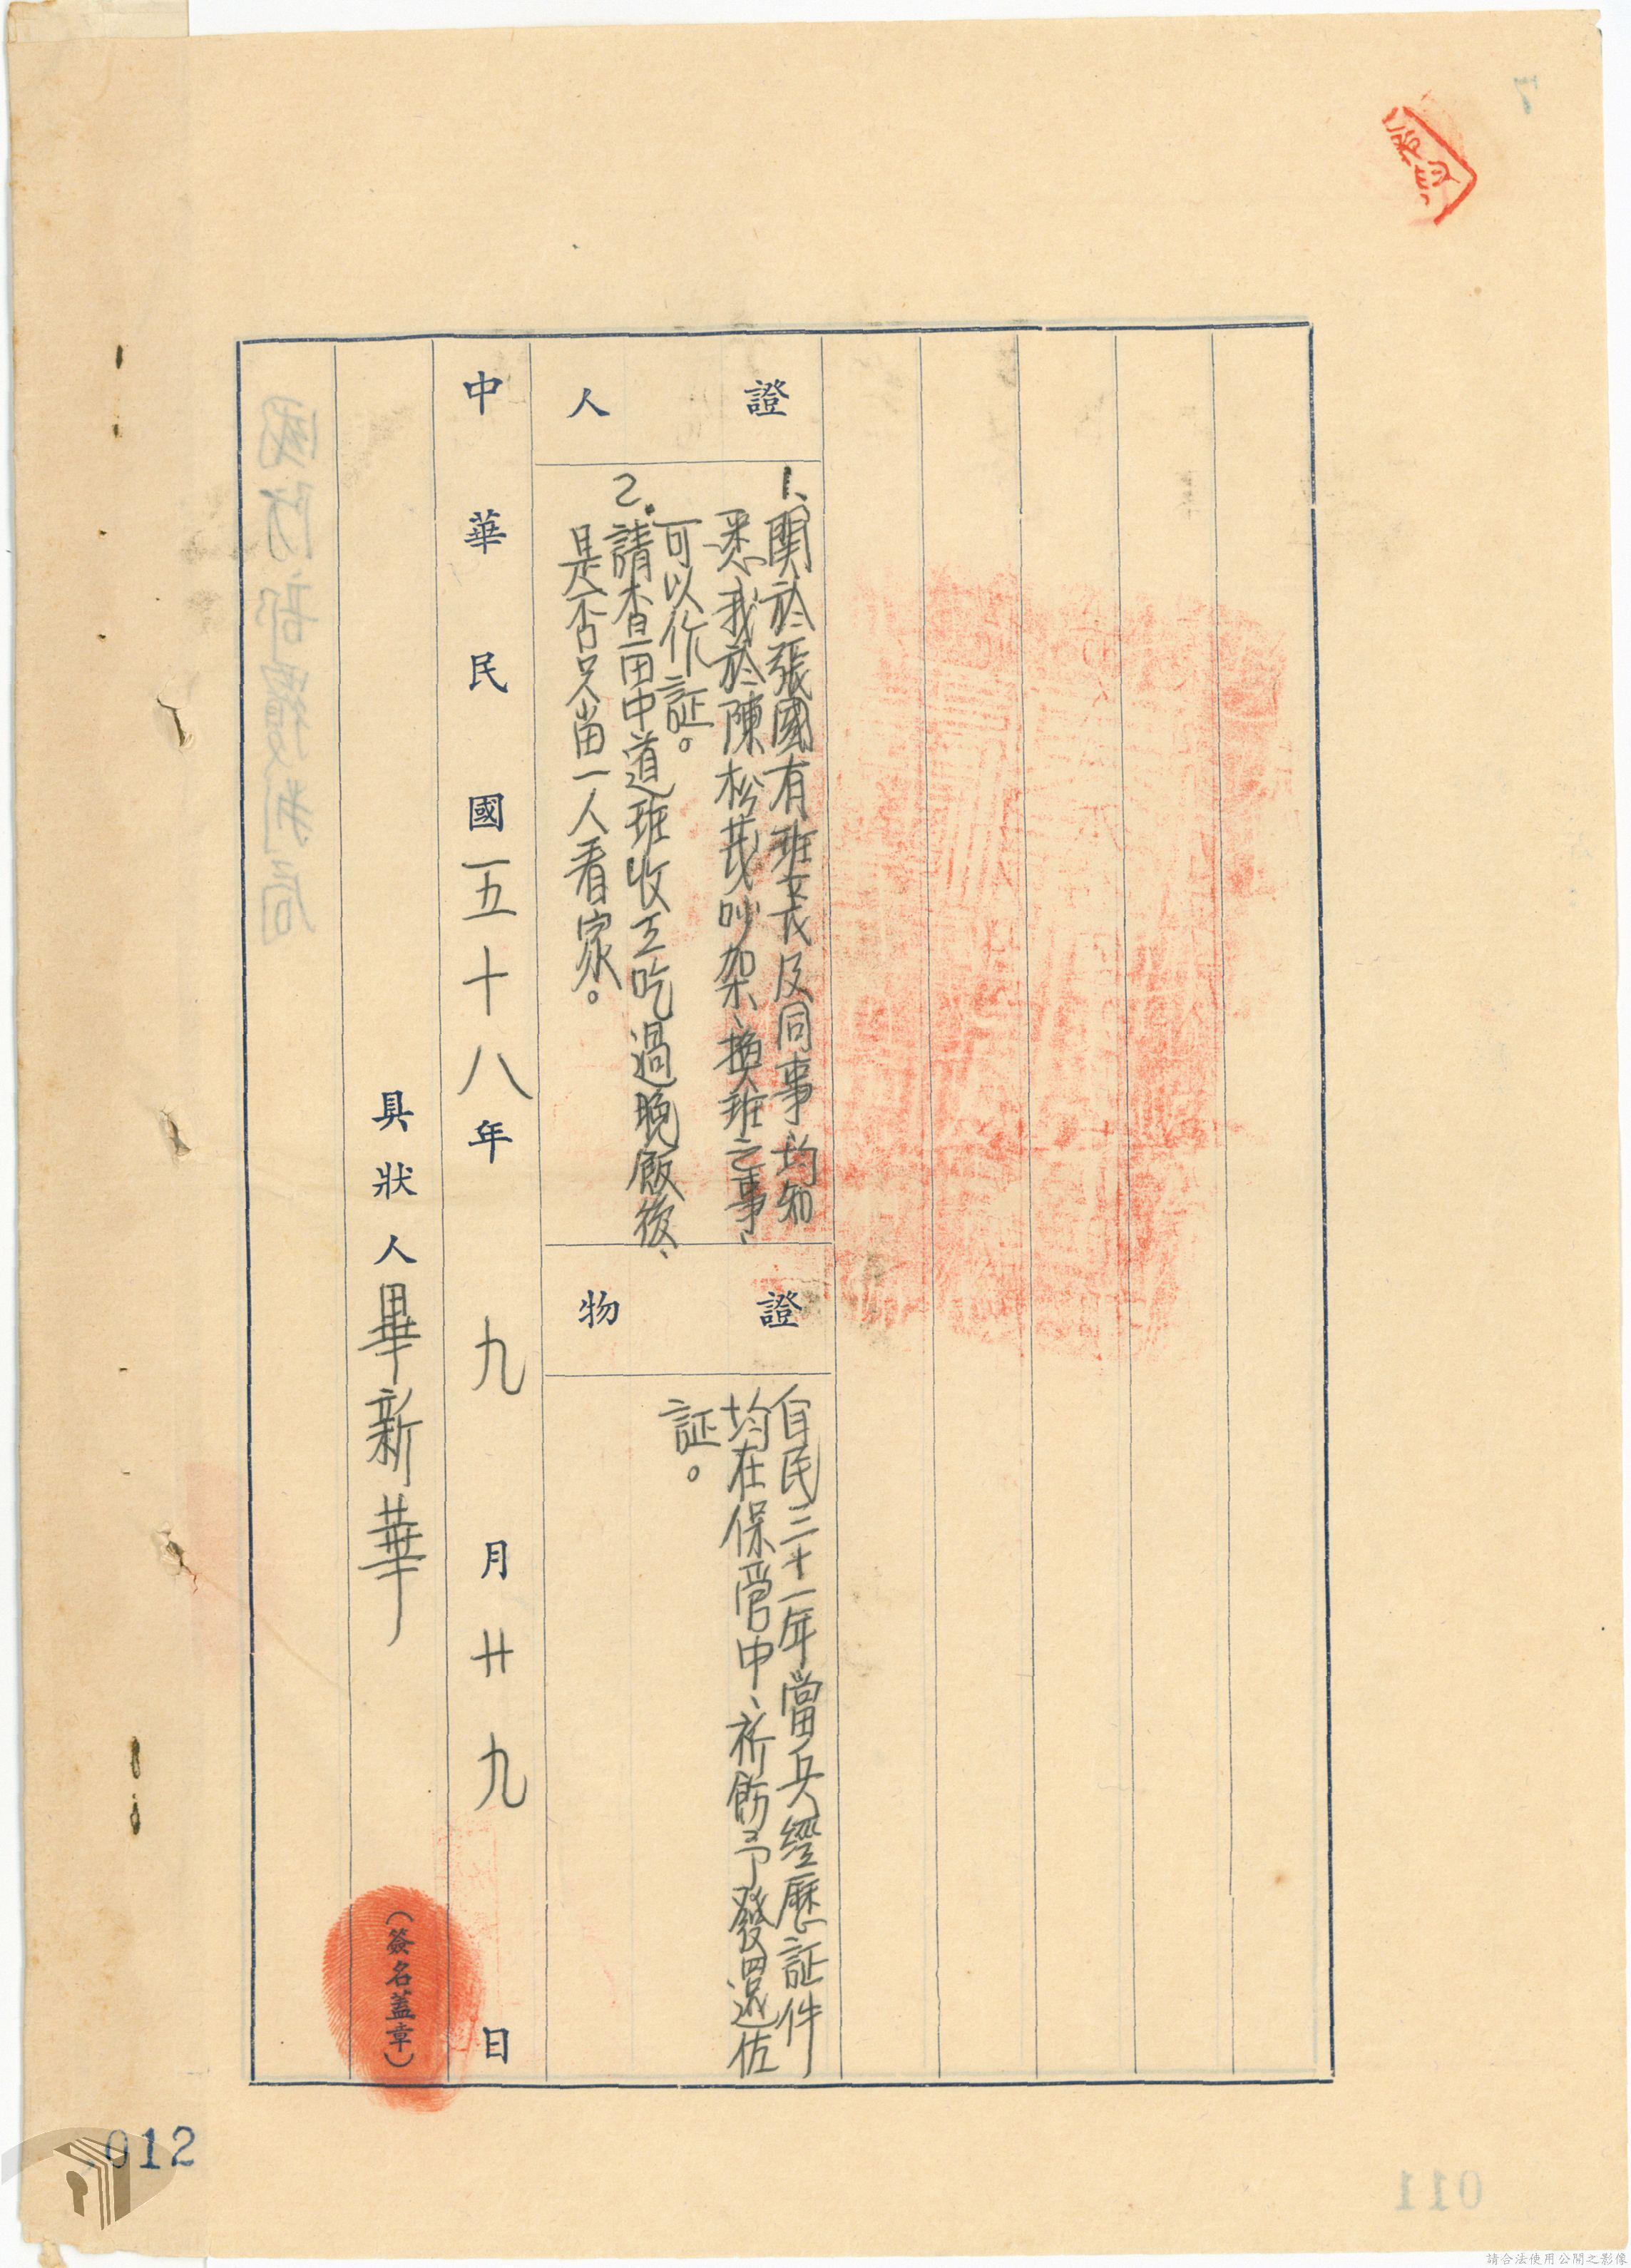 證人
1、關於張國有班長及同事、均知
悉我於陳松茂吵架、換班之事、
可以作証。
2.請查田中道班收工吃過晚飯後、
是否只留一人看家。
證物
自民三十一年當兵經歷証件
均在保管中、祈飭予發還佐
証。
中華民國五十八年九月廿九日
具狀人畢新華
（簽名蓋章）
012
011
7
國防部覆判局
請合法使用公開之影像